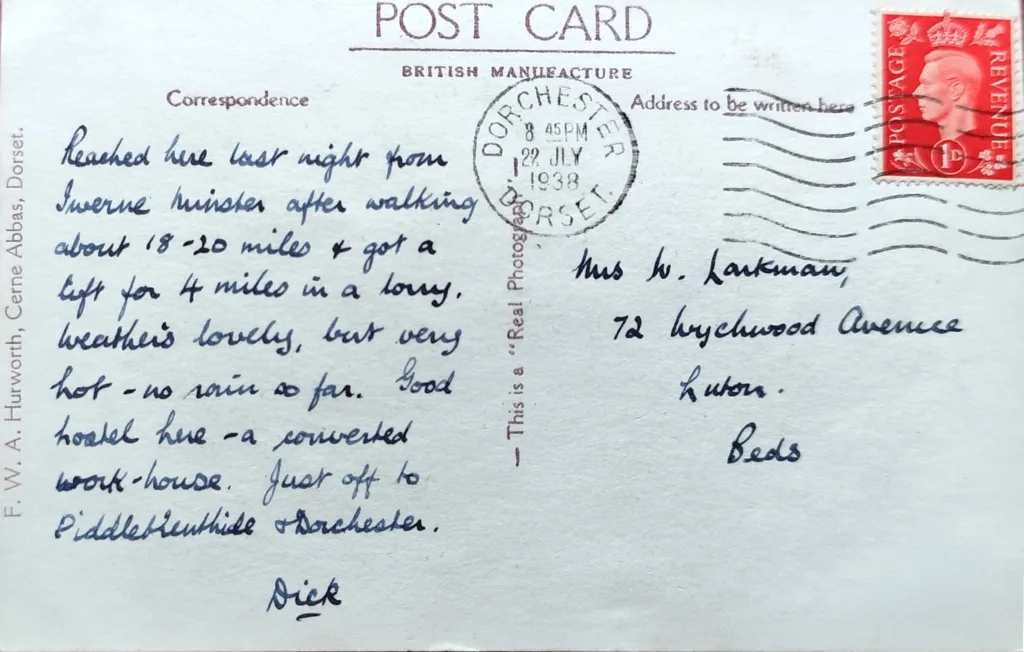 POST CARD
BRITISH MANUFACTURE
Correspondence
Address to be written here
Reached here last night from
Iwerne Minster after walking
about 18-20 miles & got a
lift for 4 miles in a lorry.
Weather's lovely, but very
hot - no rain so far. Good
hostel here - a converted
work-house. Just off to
Piddletrenthide & Dorchester.
Dick
Mrs W. Larkman,
72 Wychwood Avenue
Luton.
Beds
DORCHESTER
8 45PM
22 JLY
1938
DORSET.
POSTAGE
REVENUE
1D
— This is a "Real Photograph" —
F. W. A. Hurworth, Cerne Abbas, Dorset.